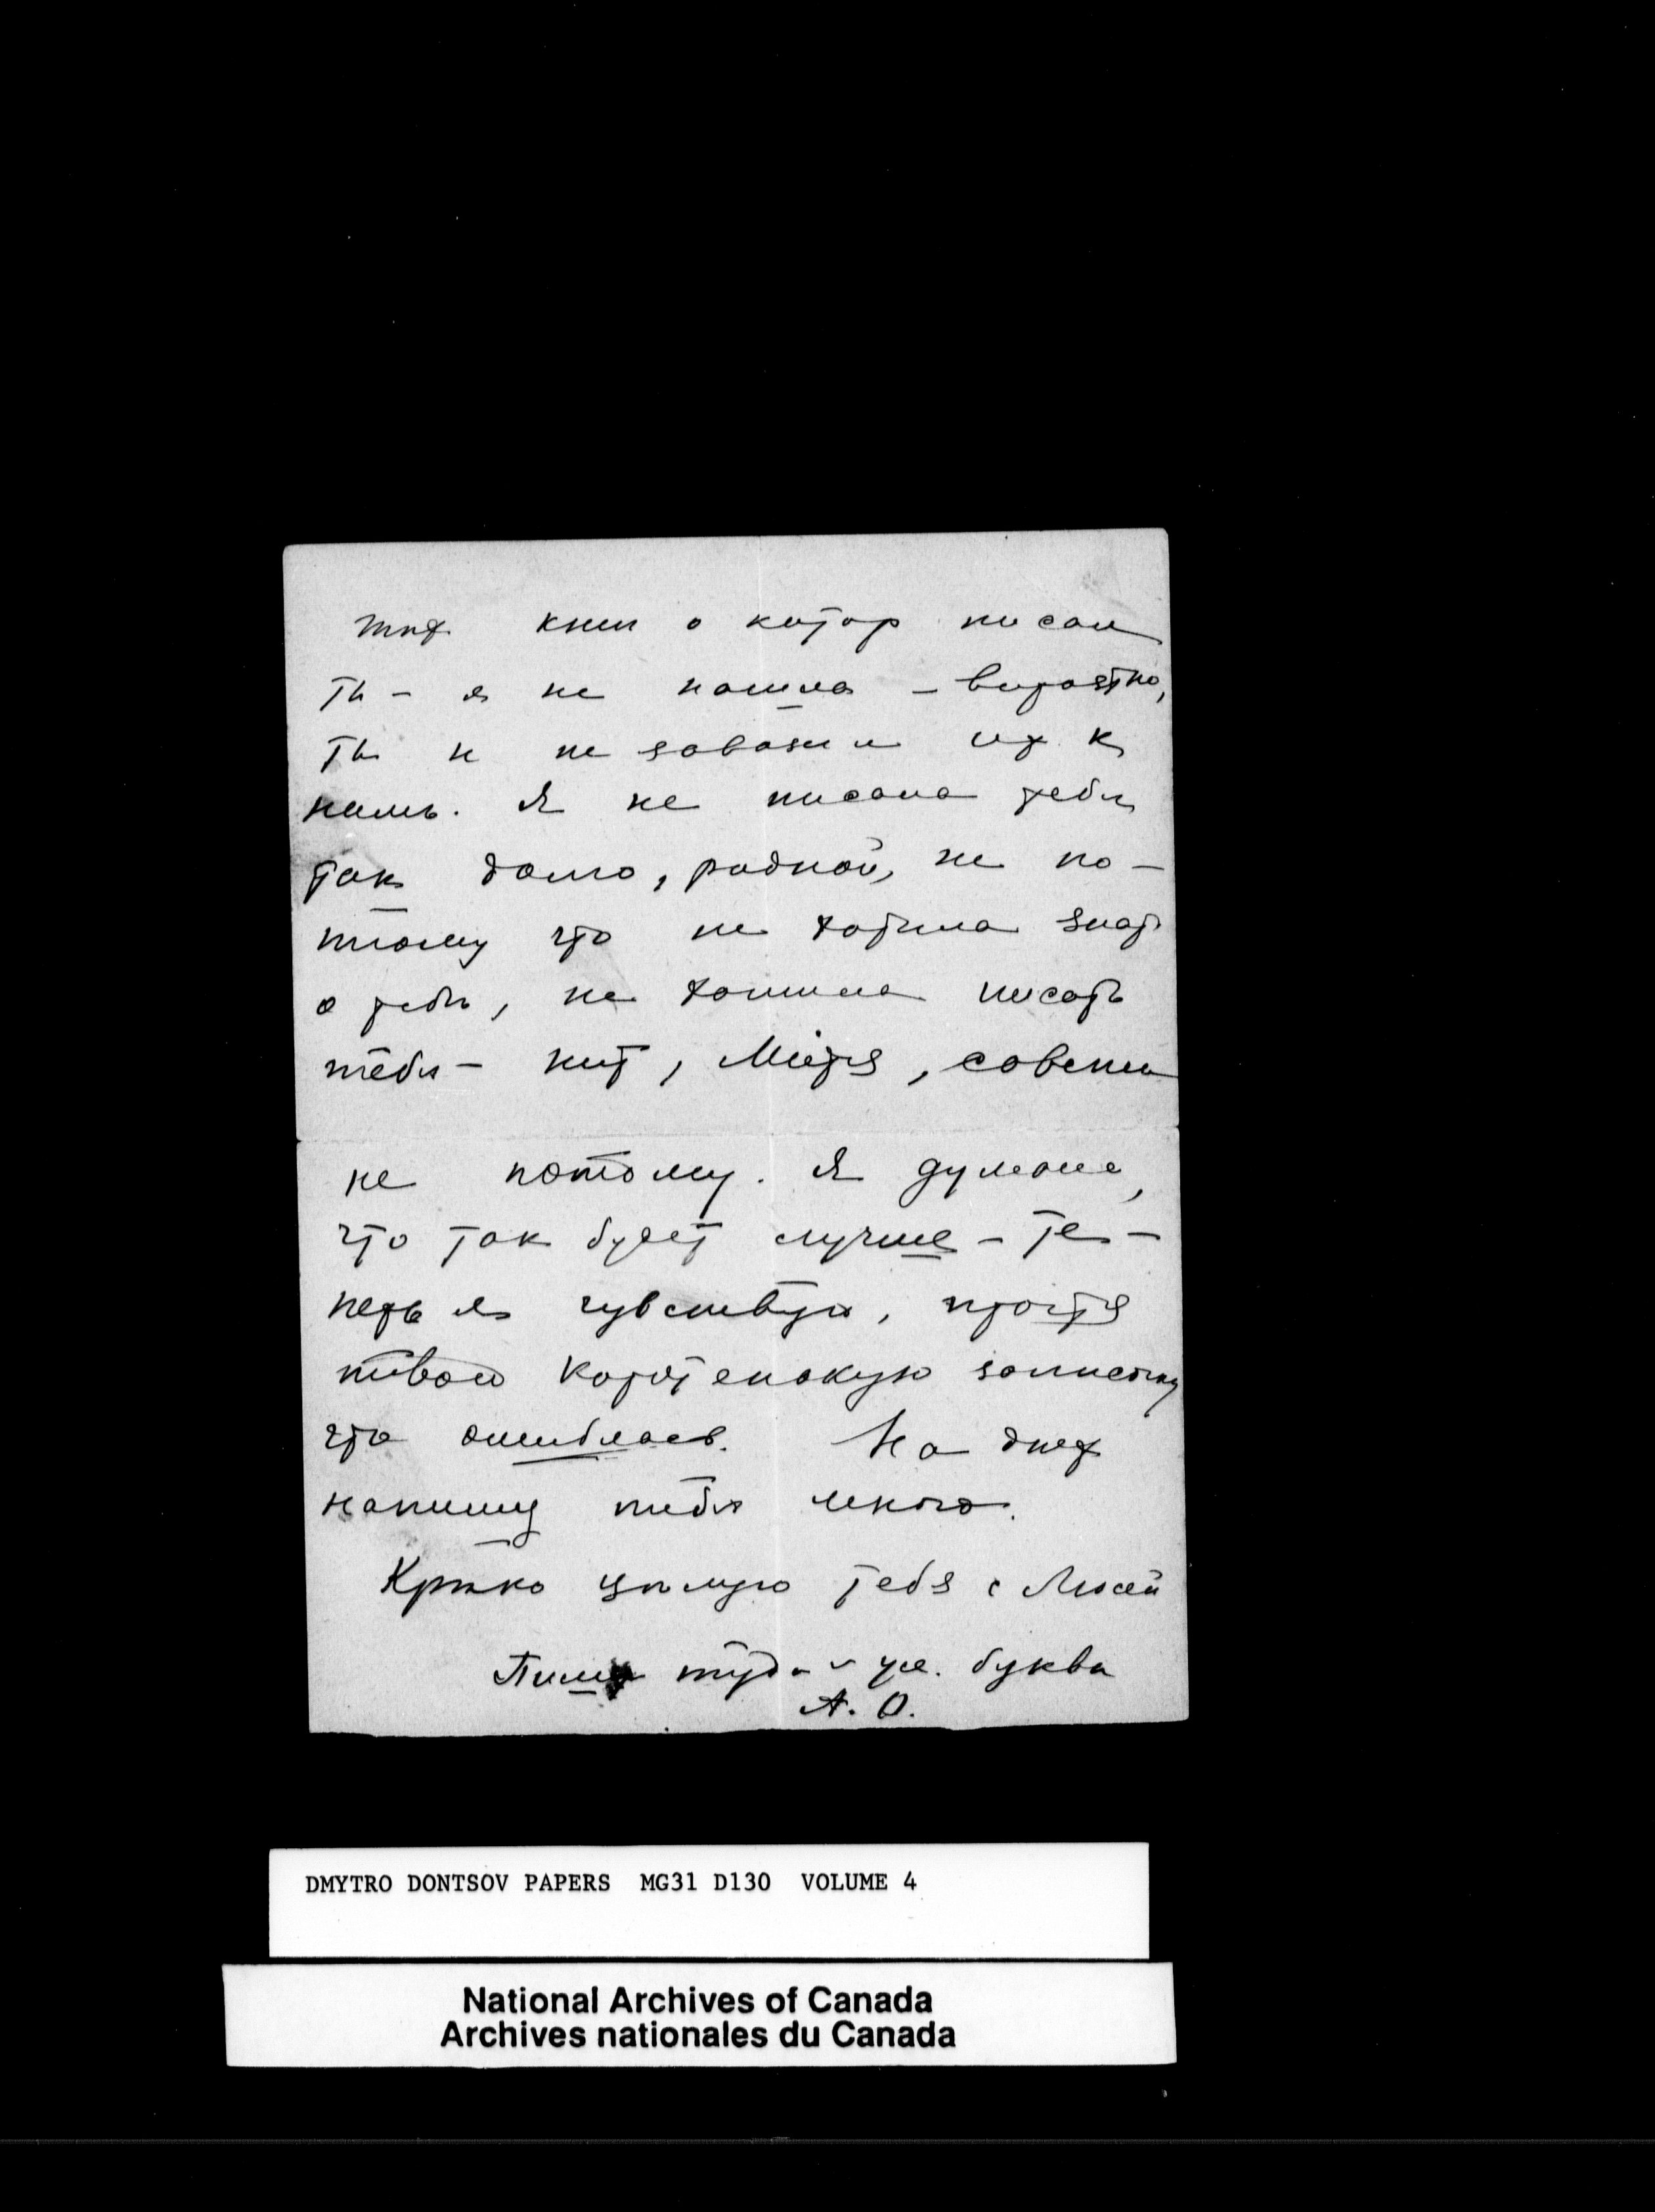 тѣх книг о котор писал
ты – я не нашла – вѣроятно,
ты и не завозил их к
нам. Я не писала тебѣ
так долго, родной, не по–
тому что не хотѣла знать
о тебѣ, не хотѣла писать
тебѣ – нѣт, Митя, совсем
не потому. Я думала,
что так будет лучше – те–
перь я чувствую, прочтя
твою коротенькую записочку
что ошиблась. На днях
напишу тебѣ много.
Крѣпко цѣлую тебя с Люсей
Пиши туда
буквы
А. О.
DMYTRO DONTSOV PAPERS MG31 D130 VOLUME 4
National Archives of Canada
Archives nationales du Canada